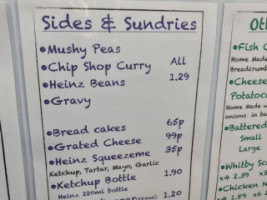 Sides & Sundries
Mushy Peas
Chip Shop Curry All
Heinz Beans 1.29
Gravy
Bread cakes 65p
Grated Cheese 99p
Heinz Squeezeme 35p
Ketchup, Tartar, Mayo, Garlic
Ketchup Bottle 1.90
Heinz 220ml bottle
1.20
Ot
Fish C
Home Made
Breadcrumb
Cheese
Potato
Home Made
onions in b
Battered
Small
Large
Whitby Sc
Chicken N